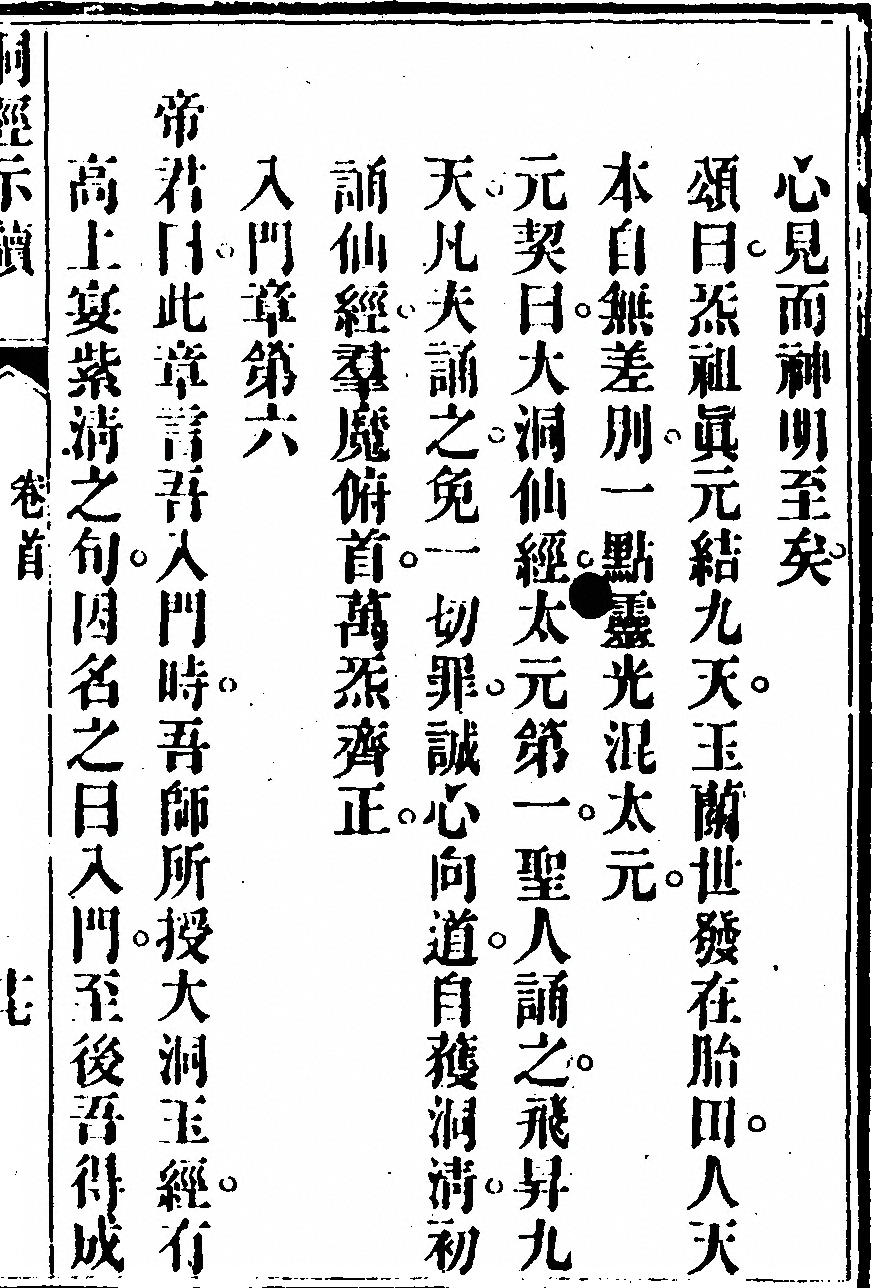 心見而神明至矣。
頌曰。炁祖眞元結九天。玉蘭世發在胎田。人天
本自無差別。一點靈光混太元。
元契曰。大洞仙經。太元第一。聖人誦之。飛昇九
天。凡夫誦之。免一切罪。誠心向道。自獲洞清。初
誦仙經。羣魔俯首。萬炁齊正。
入門章第六
帝君曰。此章言吾入門時。吾師所授大洞玉經。有
高上宴紫清之句。因名之曰入門。至後吾得成
洞經示讀
卷首
十七